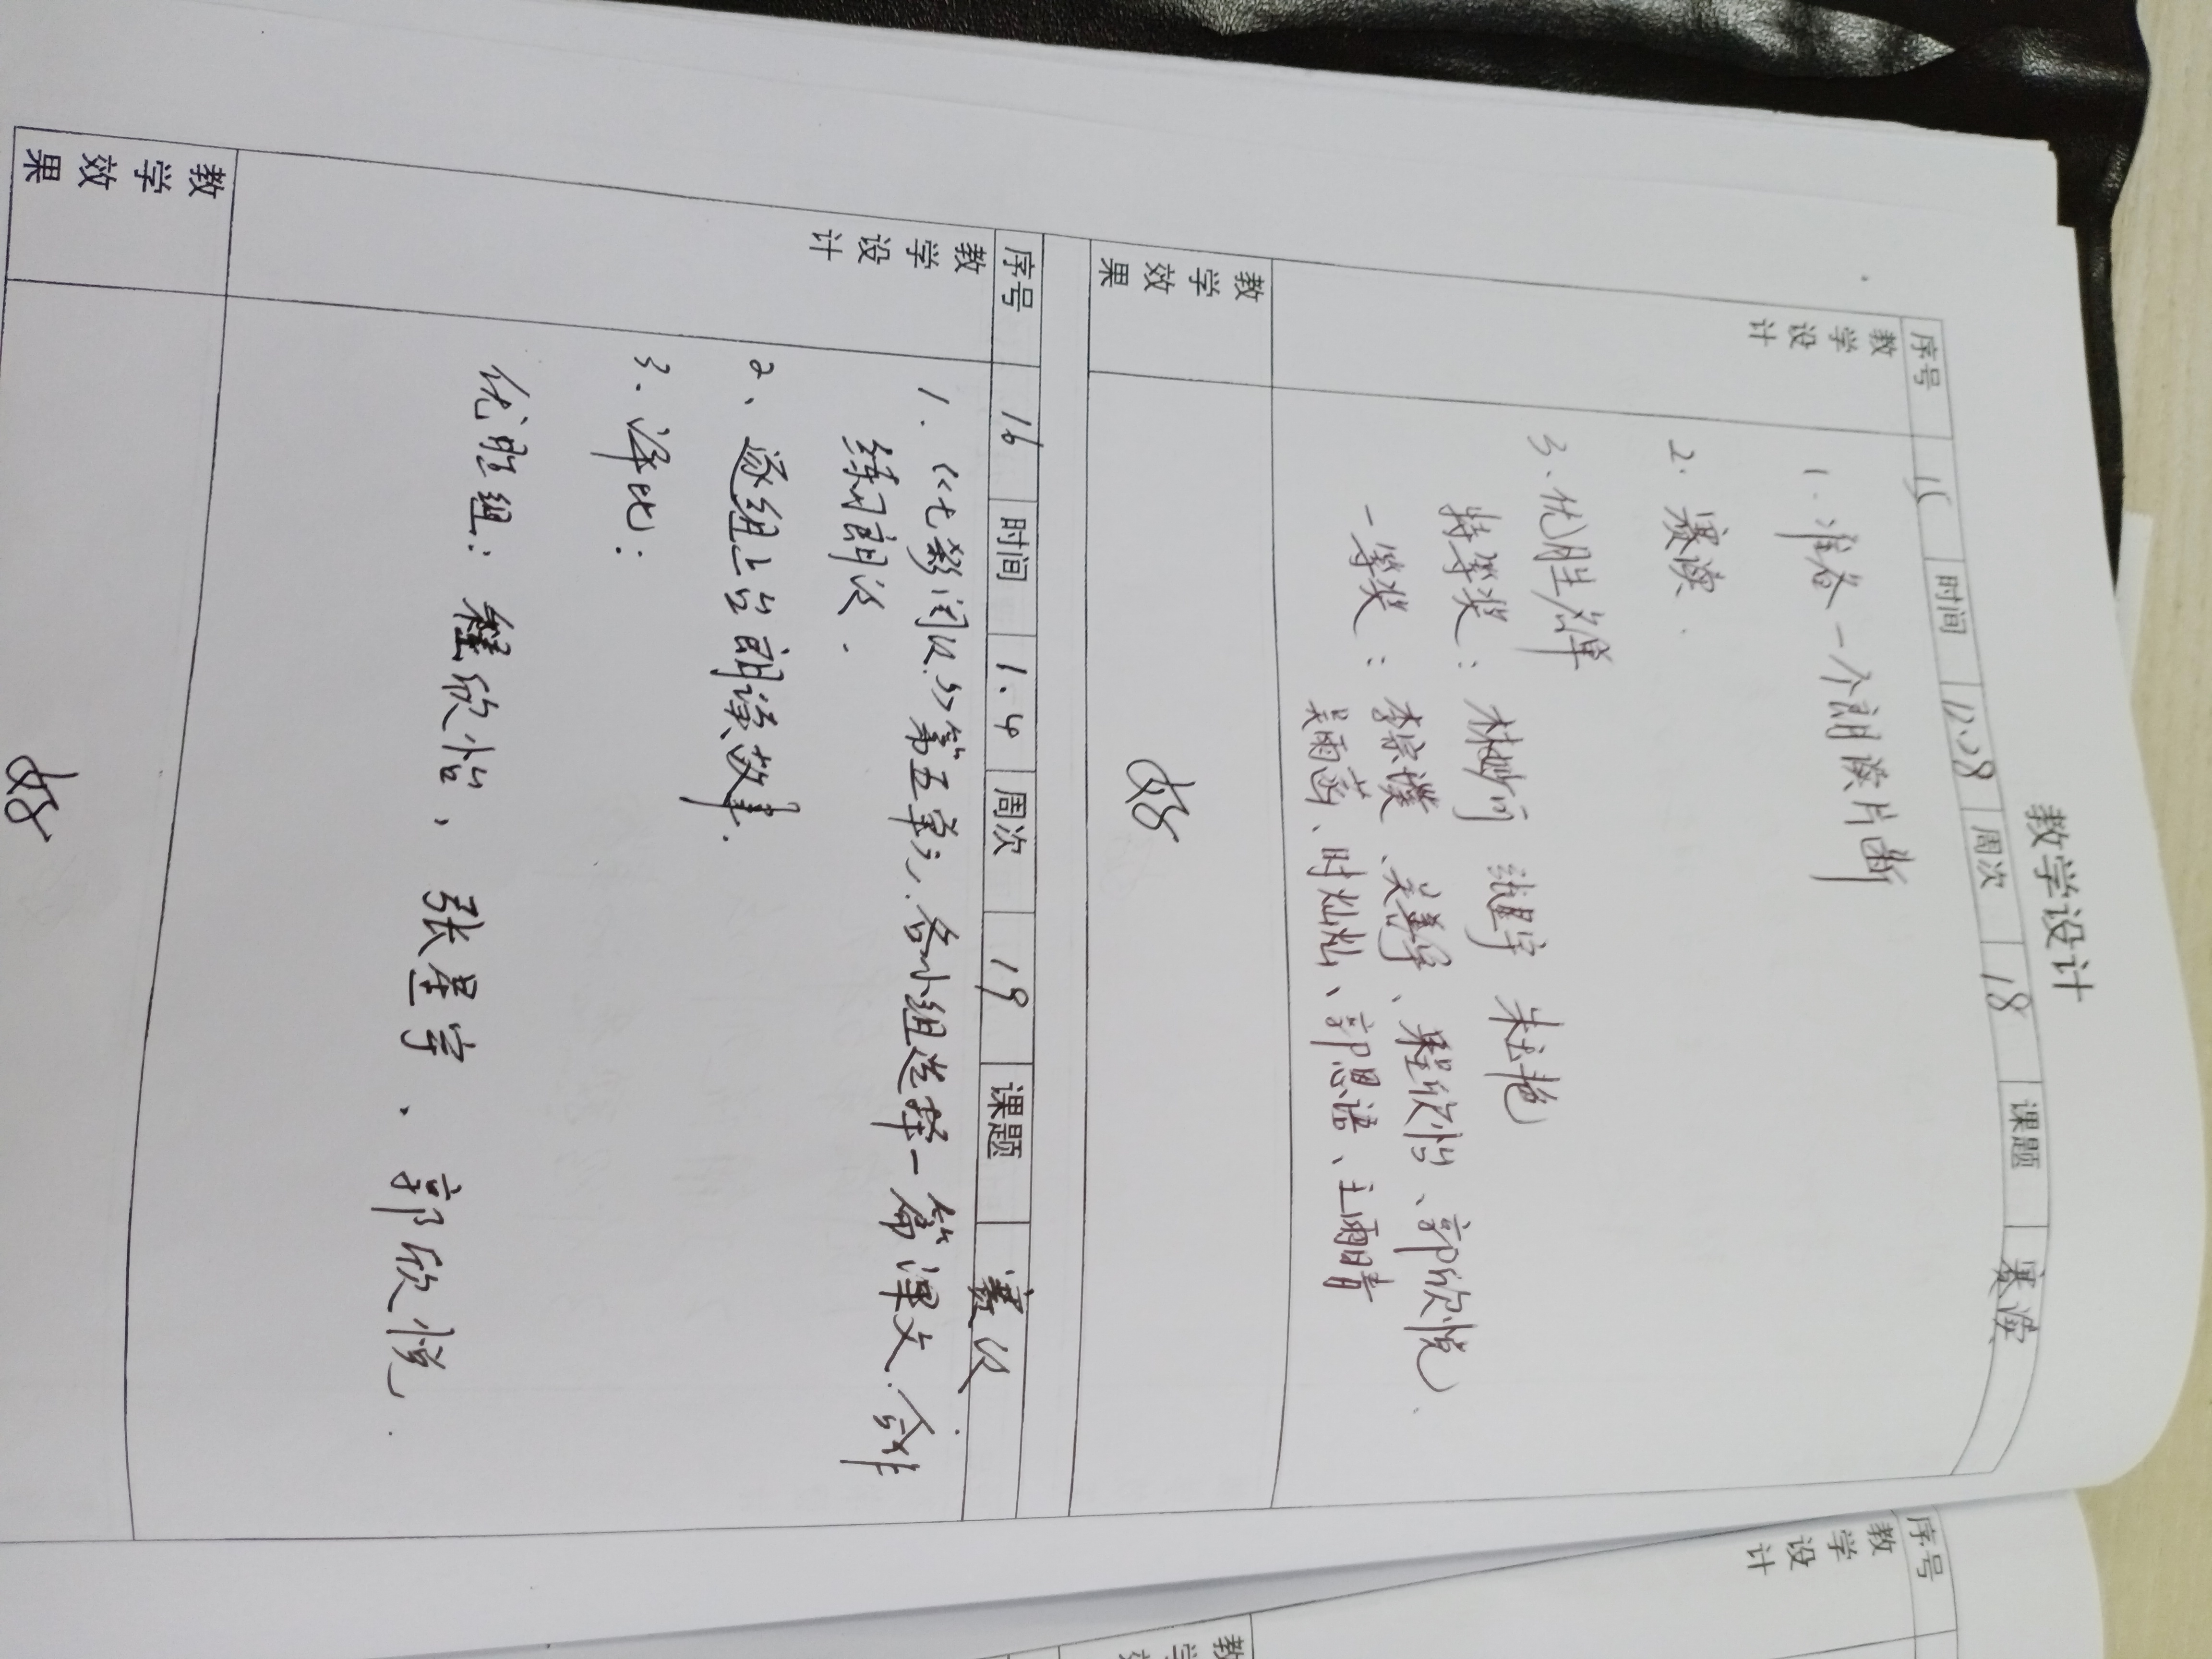 教学设计
序号 15 时间 12.28 周次 18 课题 赛读
教学设计
1. 准备一个朗读片断
2. 赛读.
3. 优胜名单
特等奖: 星宇 朱艳
一等奖: 李宗璞、吴 、程欣怡、郭欣悦、
吴雨菡、时灿灿、郭思语、王雨晴
教学效果
好
序号 16 时间 1.4 周次 19 课题 赛读
教学设计
1. 《七彩阅读》第五单元,各小组选择一篇课文,合作
练习朗读.
2、逐组上台朗读故事.
3、评比:
优胜组: 程欣怡、张星宇、郭欣悦.
教学效果
好
序号
教学设计
教